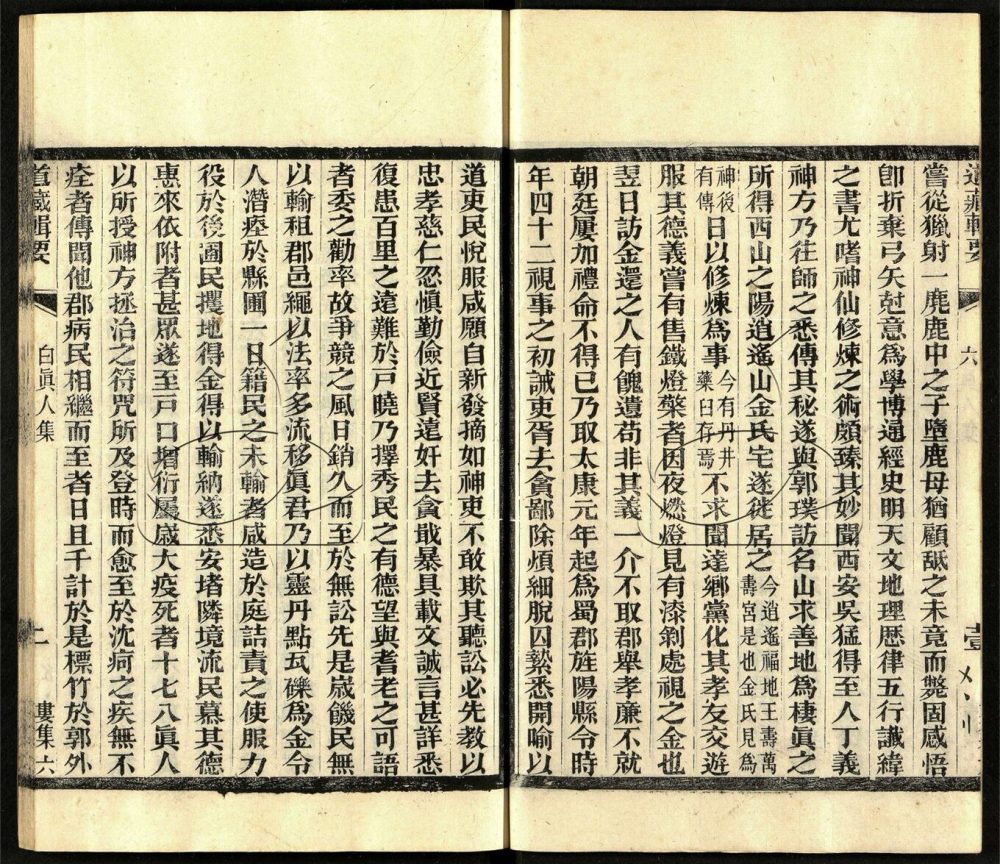 嘗從獵射一鹿鹿中之子墮鹿母猶顧舐之未竟而斃因感悟
卽折棄弓矢尅意爲學博通經史明天文地理歷律五行讖緯
之書尤嗜神仙修煉之術頗臻其妙聞西安吳猛得至人丁義
神方乃往師之悉傳其秘遂與郭璞訪名山求善地爲棲眞之
所得西山之陽逍遙山金氏宅遂徙居之今逍遙福地王壽萬壽宮是也金氏見爲
神後有傳日以修煉爲事今有丹井藥臼存焉不求聞達鄉黨化其孝友交遊
服其德義嘗有售鐵燈檠者因夜燃燈見有漆剝處視之金也
翌日訪金還之人有餽遺苟非其義一介不取郡舉孝廉不就
朝廷屢加禮命不得已乃取太康元年起爲蜀郡旌陽縣令時
年四十二視事之初誡吏胥去貪鄙除煩細脫囚縶悉開喻以
道吏民悅服咸願自新發摘如神吏不敢欺其聽訟必先教以
忠孝慈仁忍愼勤儉近賢遠奸去貪戢暴具載文誠言甚詳悉
復患百里之遠難於戸曉乃擇秀民之有德望與耆老之可語
者委之勸率故爭競之風日銷久而至於無訟先是嵗饑民無
以輸租郡邑繩以法率多流移眞君乃以靈丹點瓦礫爲金令
人潛瘞於縣圃一日籍民之未輸者咸造於庭詰責之使服力
役於後圃民攫地得金得以輸納遂悉安堵隣境流民慕其德
惠來依附者甚眾遂至戸口增衍屬嵗大疫死者十七八眞人
以所授神方拯治之符咒所及登時而愈至於沈疴之疾無不
痊者傳聞他郡病民相繼而至者日且千計於是標竹於郭外
道藏輯要 白眞人集 二 婁集六